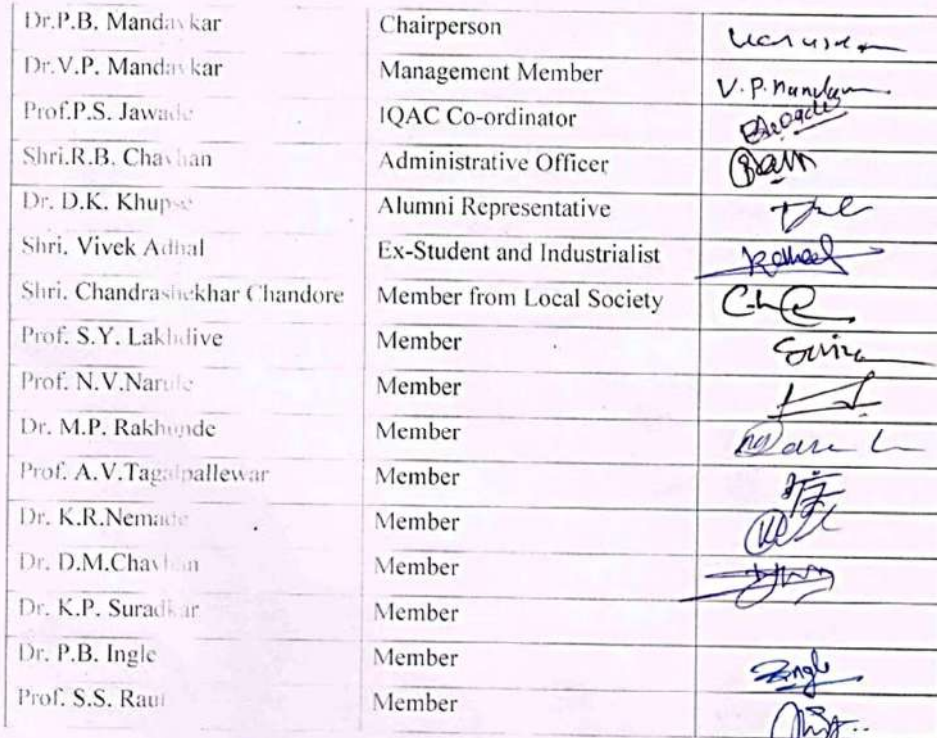 Dr.P.B. Mandavkar Chairperson
Dr.V.P. Mandavkar Management Member V.P.Mandavkar
Prof.P.S. Jawade IQAC Co-ordinator
Shri.R.B. Chavhan Administrative Officer
Dr. D.K. Khupse Alumni Representative
Shri. Vivek Adhal Ex-Student and Industrialist
Shri. Chandrashekhar Chandore Member from Local Society
Prof. S.Y. Lakhdive Member
Prof. N.V.Narule Member
Dr. M.P. Rakhunde Member
Prof. A.V.Tagalpallewar Member
Dr. K.R.Nemade Member
Dr. D.M.Chavhan Member
Dr. K.P. Suradkar Member
Dr. P.B. Ingle Member Ingle
Prof. S.S. Raut Member